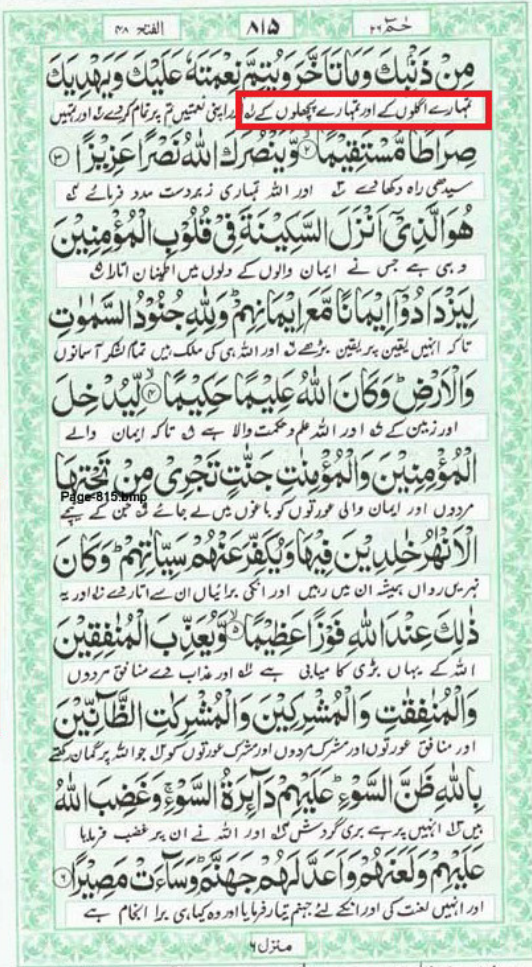 حٰمٓ ۲۶
۸۱۵
الفتح ۴۸
مِنْ ذَنْۢبِكَ وَمَا تَاَخَّرَ وَيُتِمَّ نِعْمَتَهٗ عَلَيْكَ وَيَهْدِيَكَ
تمہارے اگلوں کے اور تمہارے پچھلوں کے اور اپنی نعمتیں تم پر تمام کردے اور تمہیں
صِرَاطًا مُّسْتَقِيْمًا ۲ وَّيَنْصُرَكَ اللّٰهُ نَصْرًا عَزِيْزًا ۳
سیدھی راہ دکھا دے اور اللہ تمہاری زبردست مدد فرمائے
هُوَ الَّذِيْٓ اَنْزَلَ السَّكِيْنَةَ فِيْ قُلُوْبِ الْمُؤْمِنِيْنَ
وہی ہے جس نے ایمان والوں کے دلوں میں اطمینان اتارا
لِيَزْدَادُوْٓا اِيْمَانًا مَّعَ اِيْمَانِهِمْ ؕ وَلِلّٰهِ جُنُوْدُ السَّمٰوٰتِ
تاکہ انہیں یقین پر یقین بڑھے اور اللہ ہی کی ملک ہیں تمام لشکر آسمانوں
وَالْاَرْضِ ؕ وَكَانَ اللّٰهُ عَلِيْمًا حَكِيْمًا ۴ لِّيُدْخِلَ
اور زمین کے اور اللہ علم و حکمت والا ہے تاکہ ایمان والے
الْمُؤْمِنِيْنَ وَالْمُؤْمِنٰتِ جَنّٰتٍ تَجْرِيْ مِنْ تَحْتِهَا
Page-815.bmp
مردوں اور ایمان والی عورتوں کو باغوں میں لے جائے جن کے نیچے
الْاَنْهٰرُ خٰلِدِيْنَ فِيْهَا وَيُكَفِّرَ عَنْهُمْ سَيِّاٰتِهِمْ ؕ وَكَانَ
نہریں رواں ہمیشہ ان میں رہیں اور انکی برائیاں ان سے اتار دے اور یہ
ذٰلِكَ عِنْدَ اللّٰهِ فَوْزًا عَظِيْمًا ۵ وَّيُعَذِّبَ الْمُنٰفِقِيْنَ
اللہ کے یہاں بڑی کامیابی ہے اور عذاب دے منافق مردوں
وَالْمُنٰفِقٰتِ وَالْمُشْرِكِيْنَ وَالْمُشْرِكٰتِ الظَّآنِّيْنَ
اور منافق عورتوں اور مشرک مردوں اور مشرک عورتوں کو جو اللہ پر گمان رکھتے
بِاللّٰهِ ظَنَّ السَّوْءِ ؕ عَلَيْهِمْ دَآئِرَةُ السَّوْءِ ۚ وَغَضِبَ اللّٰهُ
ہیں انہیں پر ہے بری گردش اور اللہ نے ان پر غضب فرمایا
عَلَيْهِمْ وَلَعَنَهُمْ وَاَعَدَّ لَهُمْ جَهَنَّمَ ؕ وَسَآءَتْ مَصِيْرًا ۶
اور انہیں لعنت کی اور انکے لئے جہنم تیار فرمایا اور وہ کیا ہی برا انجام ہے
منزل ۶